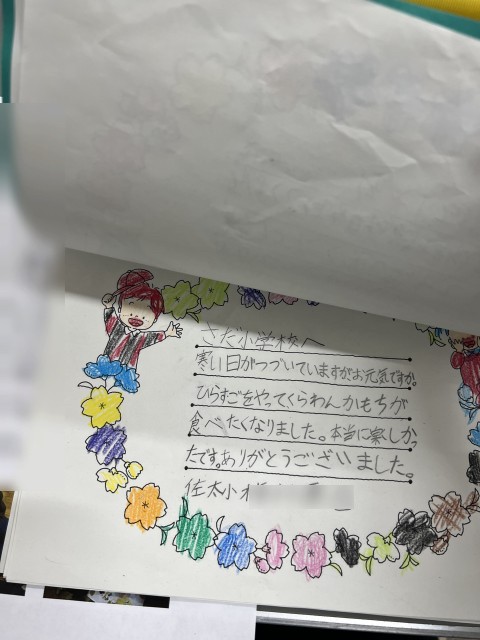 さだ小学校へ
寒い日がつづいていますがお元気ですか。
ひらすごをやってくらわんかもちが
食べたくなりました。本当に楽しかっ
たです。ありがとうございました。
佐太小